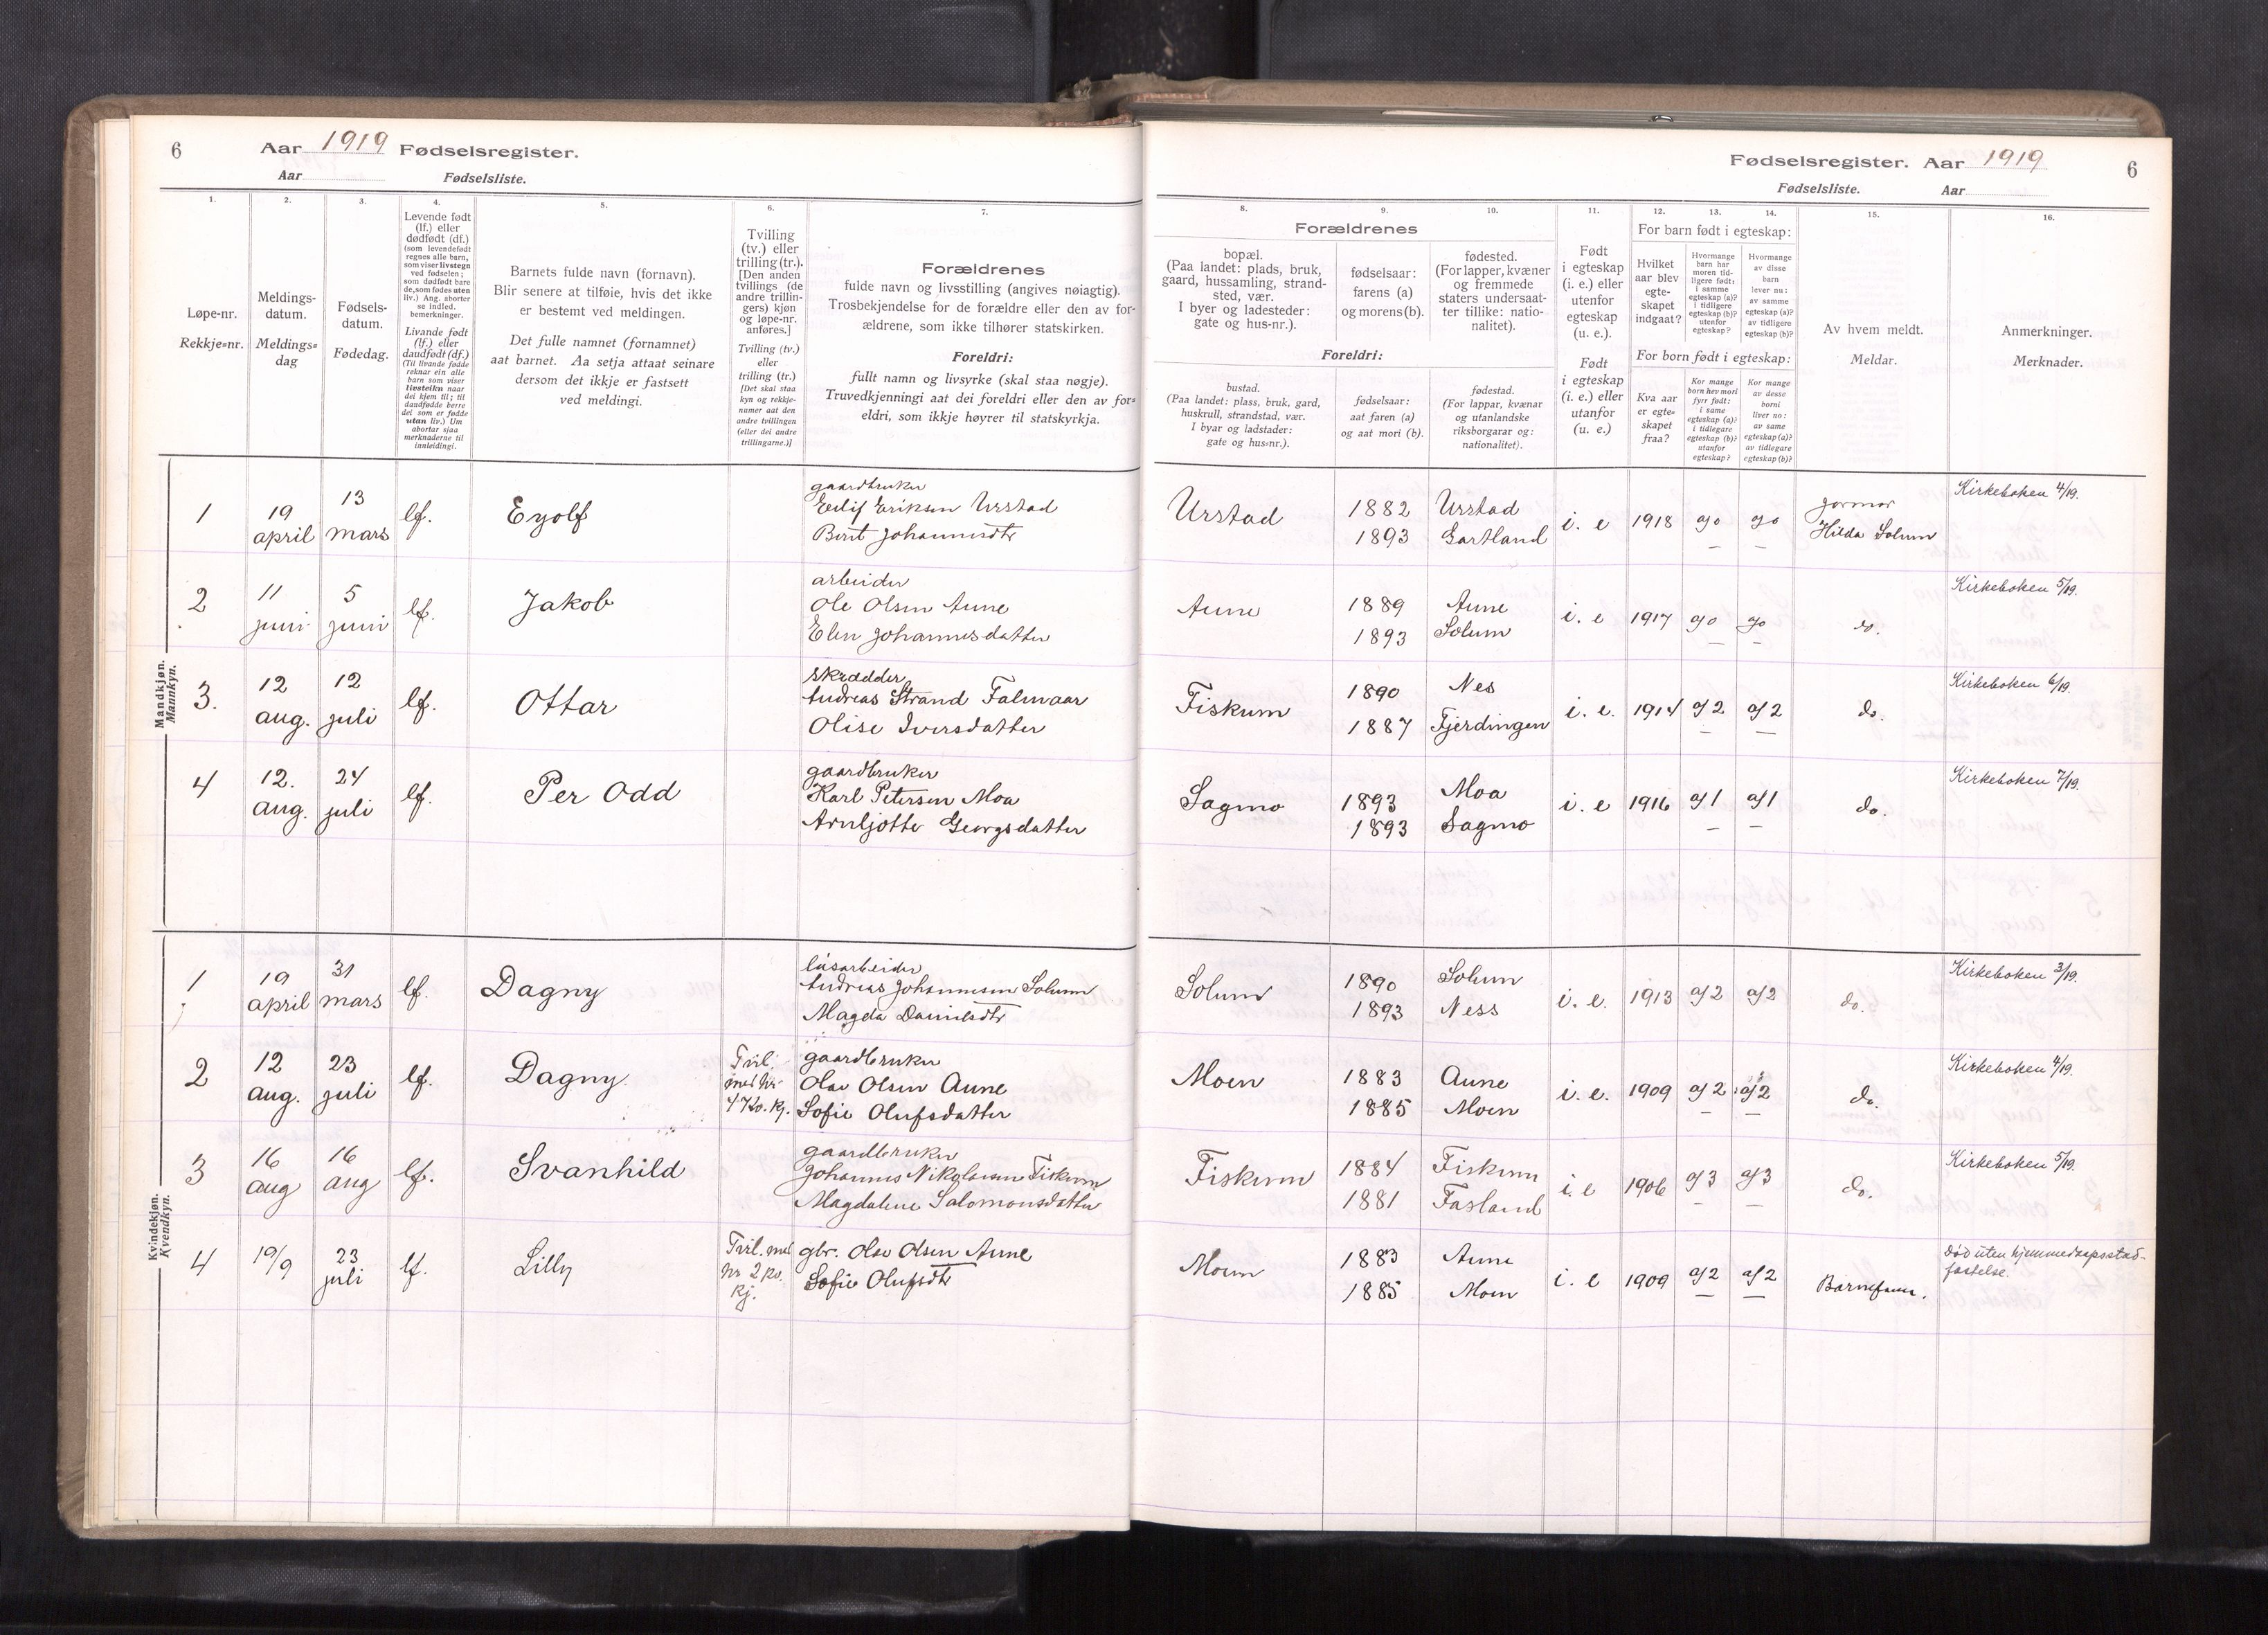 6 Aar 1919 Fødselsregister.
Aar Fødselsliste.
Fødselsregister. Aar 1919 6
Fødselsliste. Aar
1. 2. 3. 4. 5. 6. 7.
Løpe-nr.
Rekkje=nr.
Meldings-
datum.
Meldings=
dag
Fødsels-
datum.
Fødedag.
Levende født
(lf.) eller
dødfødt (df.)
(som levendefødt
regnes alle barn,
som viser livstegn
ved fødselen;
som dødfødt bare
de, som fødes uten
liv.) Ang. aborter
se indled.
bemerkninger.
Livande født
(lf.) eller
daudfødt (df.)
(Til livande fødde
reknar ein alle
barn som viser
livsteikn naar
dei kjem til; til
daudfødde berre
dei som er fødde
utan liv.) Um
abortar sjaa
merknaderne til
innleidingi.
Barnets fulde navn (fornavn).
Blir senere at tilføie, hvis det ikke
er bestemt ved meldingen.
Det fulle namnet (fornamnet)
aat barnet. Aa setja attaat seinare
dersom det ikkje er fastsett
ved meldingi.
Tvilling
(tv.) eller
trilling (tr.).
[Den anden
tvillings (de
andre trillin-
gers) kjøn
og løpe-nr.
anføres.]
Tvilling (tv.)
eller
trilling (tr.)
[Det skal staa
kyn og rekkje-
numer aat den
andre tvillingen
(eller dei andre
trillingarne.)]
Forældrenes
fulde navn og livsstilling (angives nøiagtig).
Trosbekjendelse for de forældre eller den av for-
ældrene, som ikke tilhører statskirken.
Foreldri:
fullt namn og livsyrke (skal staa nøgje).
Truvedkjenningi aat dei foreldri eller den av for=
eldri, som ikkje høyrer til statskyrkja.
8. 9. 10. 11. 12. 13. 14. 15. 16.
Forældrenes
bopæl.
(Paa landet: plads, bruk,
gaard, hussamling, strand-
sted, vær.
I byer og ladesteder:
gate og hus-nr.).
fødselsaar:
farens (a)
og morens (b).
fødested.
(For lapper, kvæner
og fremmede
staters undersaat-
ter tillike: natio-
nalitet).
Foreldri:
bustad.
(Paa landet: plass, bruk, gard,
huskrull, strandstad, vær.
I byar og ladstader:
gate og hus=nr.).
fødselsaar:
aat faren (a)
og aat mori (b).
fødestad.
(For lappar, kvænar
og utanlandske
riksborgarar og:
nationalitet).
Født
i egteskap
(i. e.) eller
utenfor
egteskap
(u. e.)
Født
i egteskap
(i. e.) eller
utanfor
(u. e.)
For barn født i egteskap:
Hvilket
aar blev
egte-
skapet
indgaat?
Hvormange
barn har
moren tid-
ligere født:
i samme
egteskap (a)?
i tidligere
egteskap (b)?
utenfor
egteskap?
Hvormange
av disse
barn
lever nu:
av samme
egteskap (a)?
av tidligere
egteskap (b)?
For born født i egteskap:
Kva aar
er egte=
skapet
fraa?
Kor mange
born hev mori
fyrr født:
i same
egteskap (a)?
i tidlegare
egteskap (b)?
utanfor
egteskap?
Kor mange
av desse
borni
liver no:
av same
egteskap (a)?
av tidlegare
egteskap (b)?
Av hvem meldt.
Meldar.
Anmerkninger.
Merknader.
Mandkjøn.
Mannkyn.
1 19 april 13 mars lf. Eyolf
gaardbruker
Eilif Eriksen Urstad
Berit Johannesdtr
Urstad 1882 Urstad
1893 Gartland
i. e 1918 a/o a/o jormor
Hilda Solum
Kirkeboken 4/19.
2 11 juni 5 juni lf. Jakob
arbeider
Ole Olsen Aune
Elen Johannesdatter
Aune 1889 Aune
1893 Solum
i. e 1917 a/o a/o do.
Kirkeboken 5/19.
3. 12 aug. 12 juli lf. Ottar
skrædder
Andreas Strand Falmaar
Olise Iversdatter
Fiskum 1890 Nes
1887 Fjerdingen
i. e. 1914 a/2 a/2 do.
Kirkeboken 6/19.
4 12. aug. 24 juli lf. Per Odd
gaardbruker
Karl Petersen Moa
Arnljotte Georgsdatter
Sagmo 1893 Moa
1893 Sagmo
i. e 1916 a/1 a/1 do.
Kirkeboken 7/19.
Kvindekjøn.
Kvendkyn.
1 19 april 31 mars lf. Dagny
løsarbeider
Andreas Johannesen Solum
Magda Danielsdtr
Solum 1890 Solum
1893 Ness
i. e. 1913 a/2 a/2 do.
Kirkeboken 3/19.
2 12 aug. 23 juli lf. Dagny.
Tvil.
med Nr.
4 Kv. Kj.
gaardbruker
Olav Olsen Aune
Sofie Olufsdatter
Moen 1883 Aune
1885 Moen
i. e. 1909 a/2 a/2 do.
Kirkeboken 4/19.
3 16 aug 16 aug lf. Svanhild
gaardbruker
Johannes Nikolaisen Fiskum
Magdalene Salomonsdatter
Fiskum 1884 Fiskum
1881 Fasland
i. e 1906 a/3 a/3 do.
Kirkeboken 5/19.
4 19/9 23 juli lf. Lilly
Tvil. med
Nr 2 Kv.
Kj.
gbr. Olav Olsen Aune
Sofie Olufsdtr
Moen 1883 Aune
1885 Moen
i. e 1909 a/2 a/2 Barnefaren.
Død uten hjemmedaapsstad-
fæstelse.